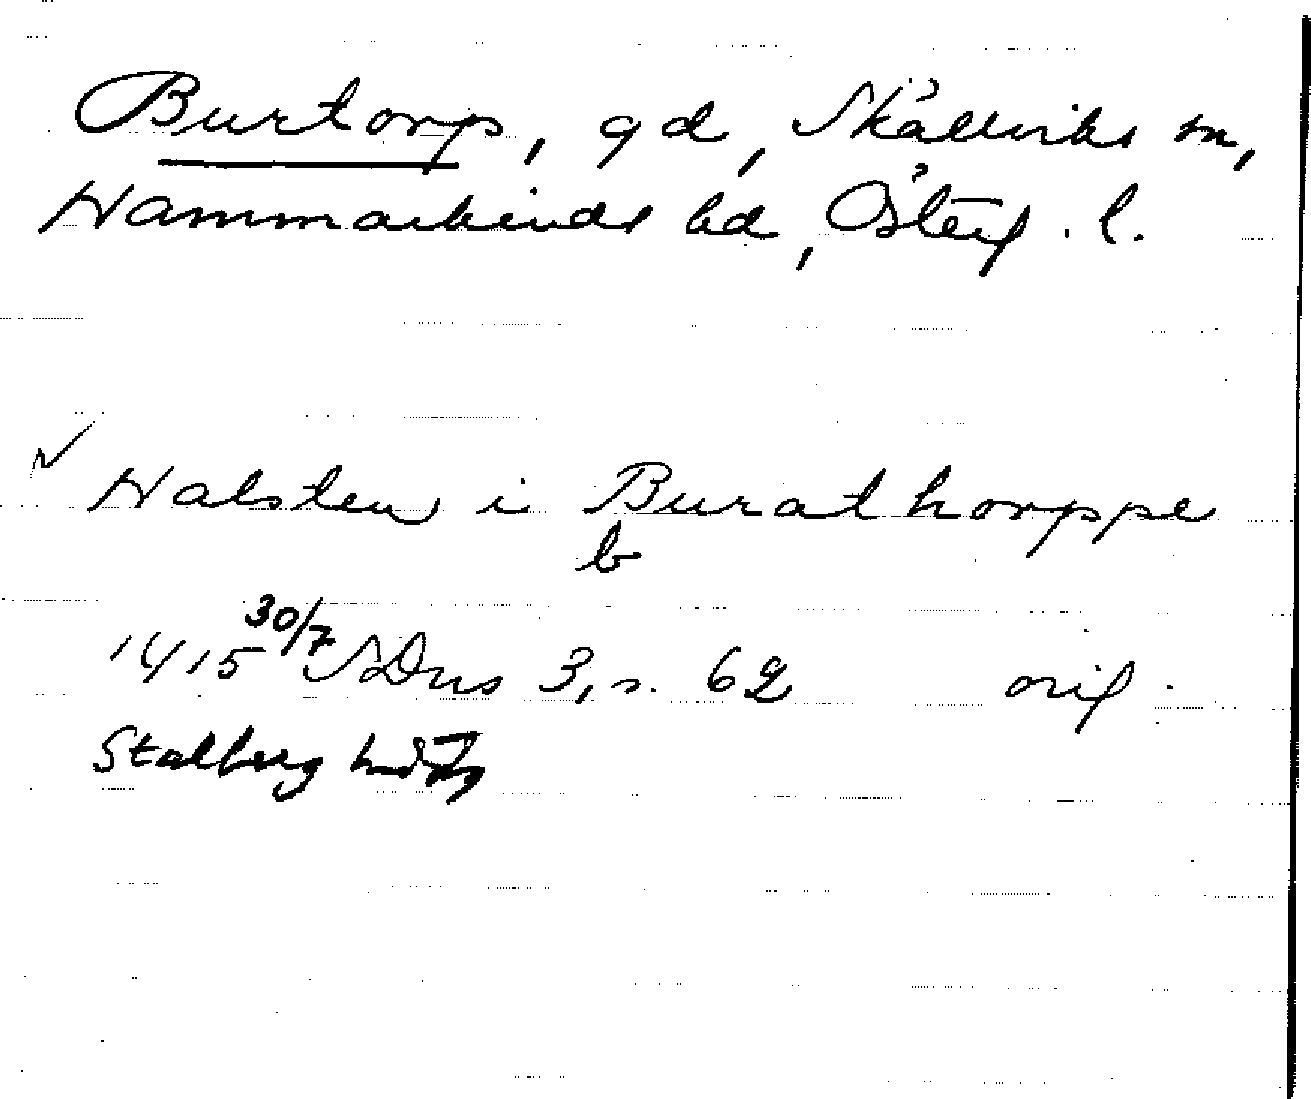 Burtorp, gd, Skällviks sn,
Hammarkinds hd, Österg. l.
Halsten i Burathorppe
b
1415 30/7 SDns 3, s. 62 orig.
Stalberg